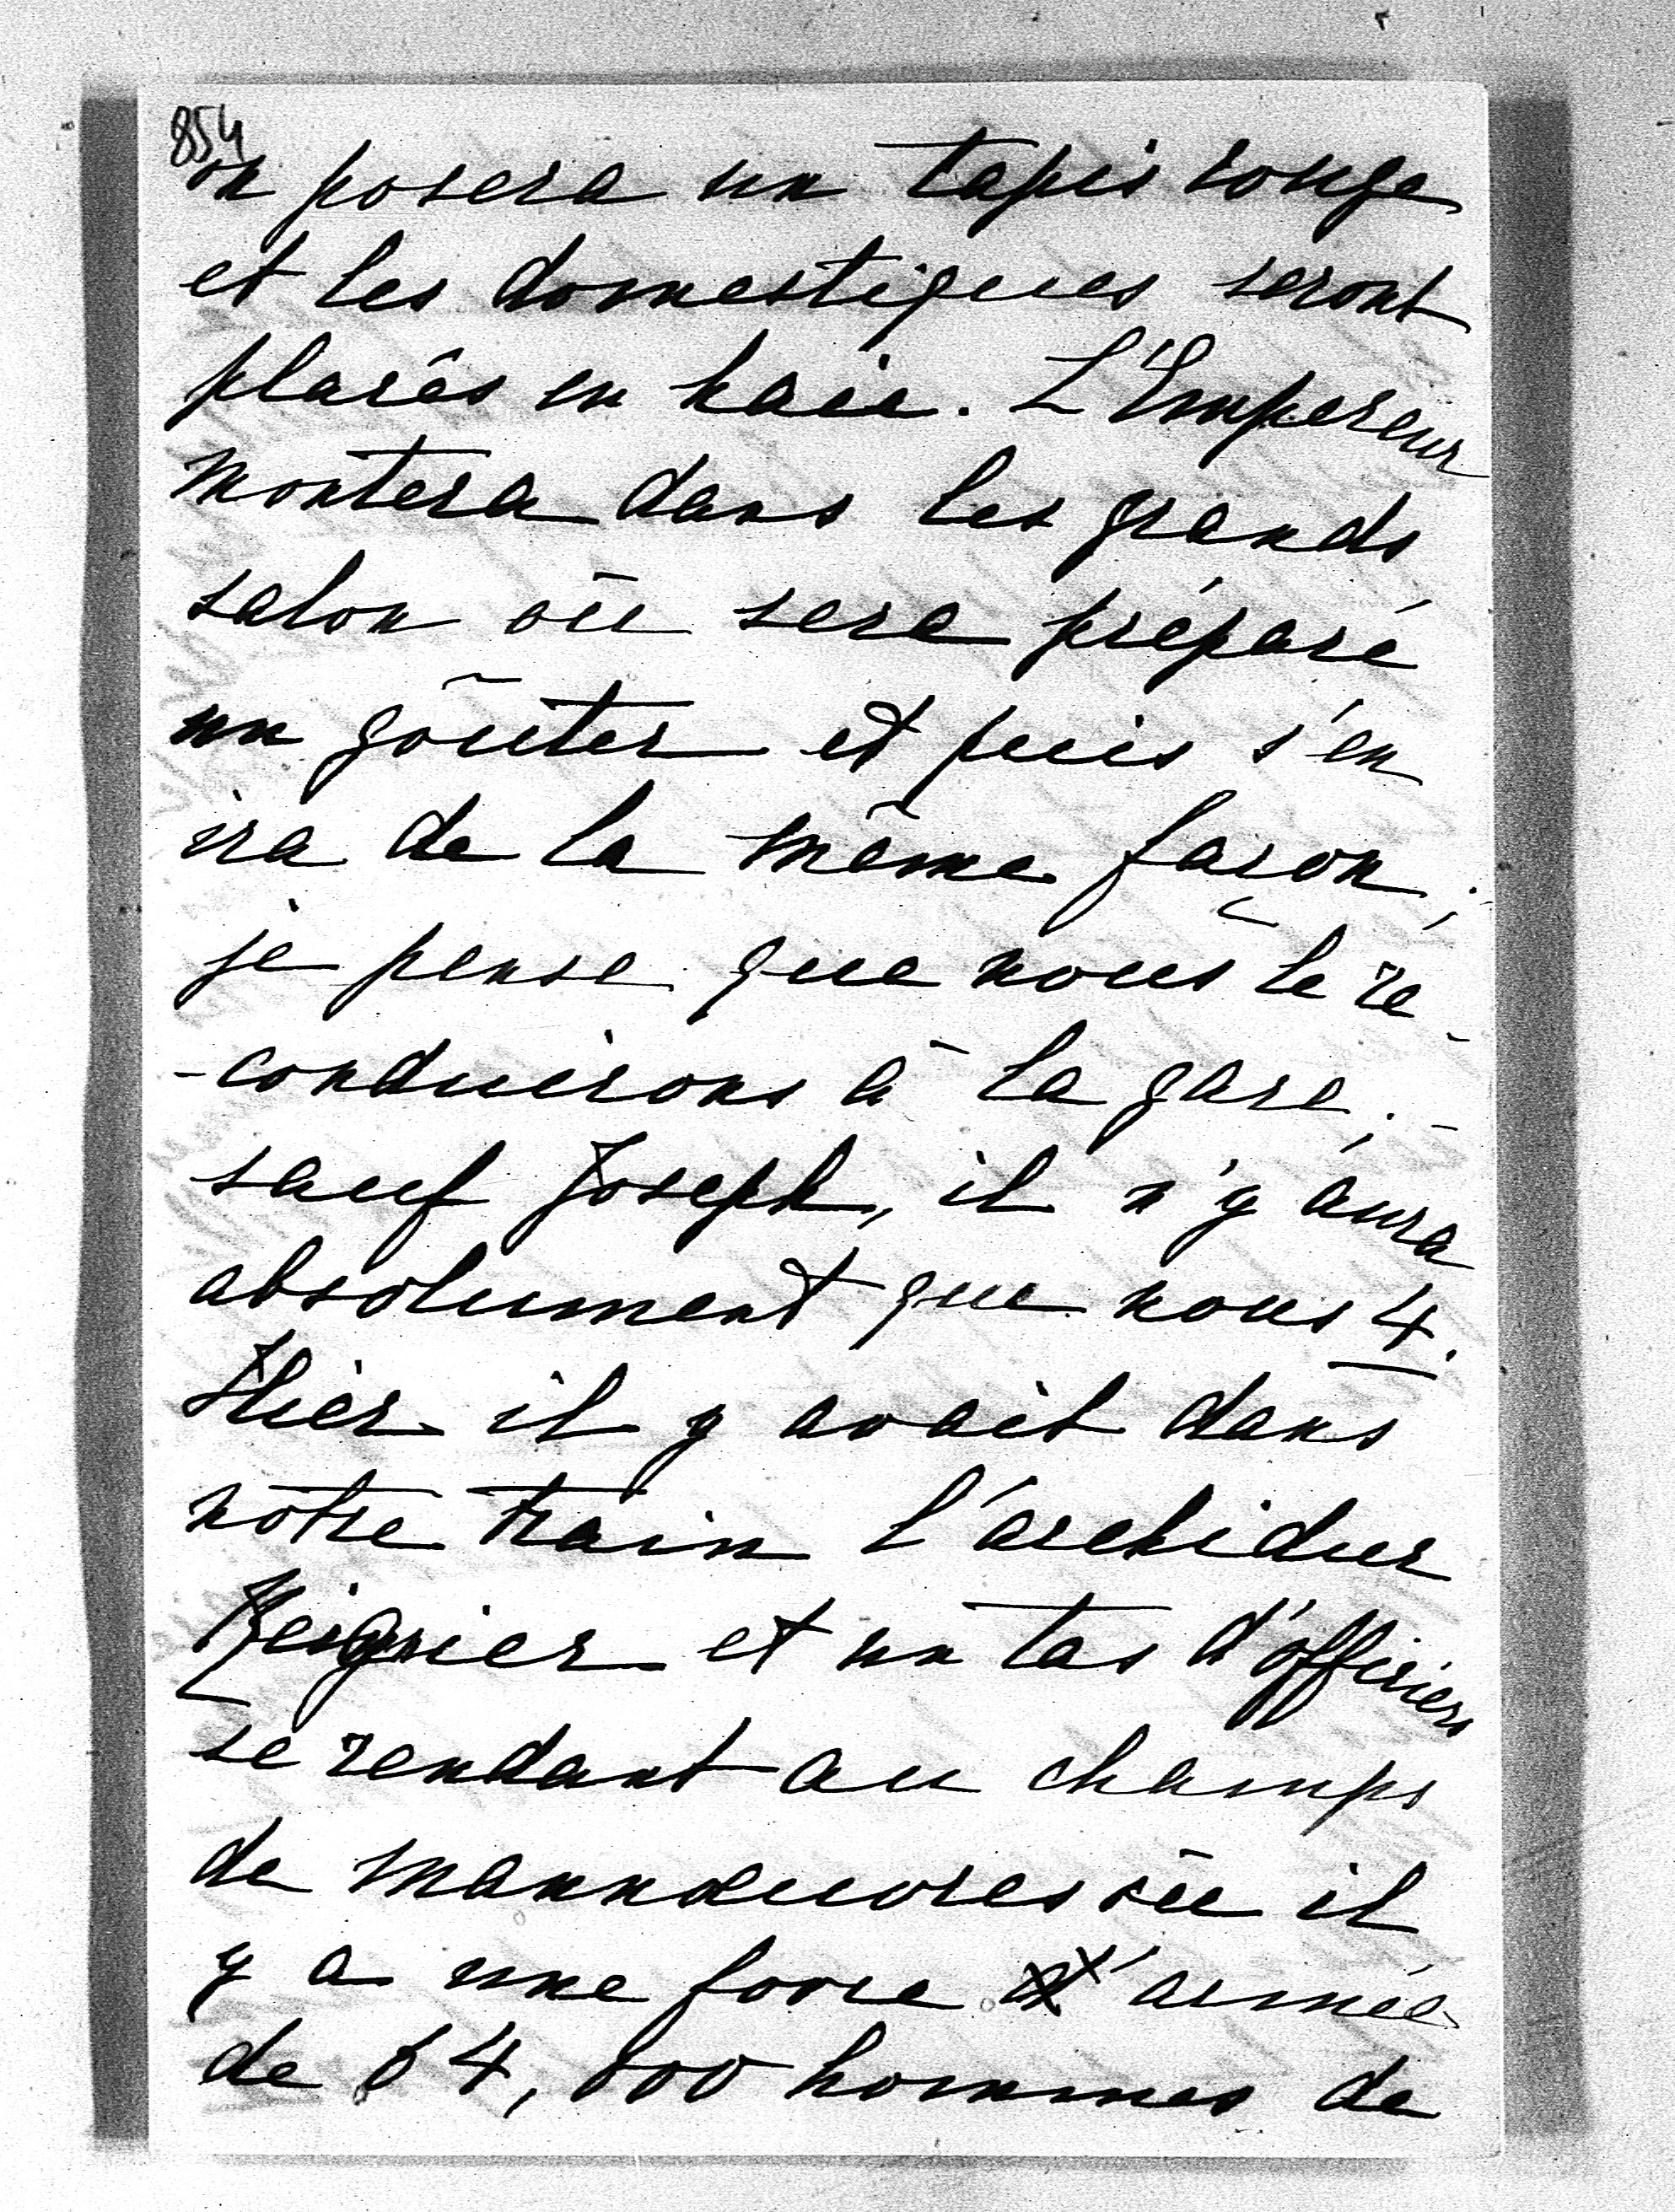 854
on posera un tapis rouge
et les domestiques seront
placés en haie. L'Empereur
montera dans les grands
salon où sera préparé
un goûter et puis s'en
ira de la même façon;
je pense que nous le re-
-conduirons à la gare; -
sauf Joseph, il n'y aura
absolument que nous 4.
Hier il y avait dans
notre train l'archiduc
Reignier et un tas d'officiers
se rendant au champs
de mannoeuvres où il
y a une force d'armée
de 64,000 hommes de